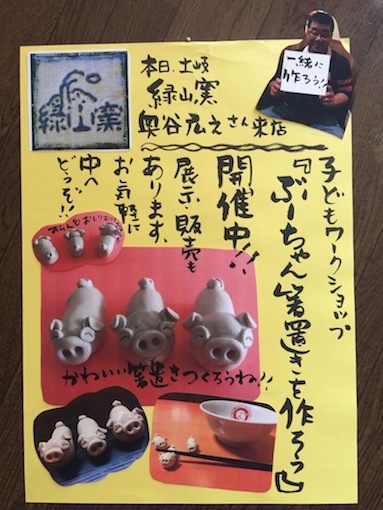 緑山窯
本日、土岐
緑山窯
奥谷広之さん来店
一緒に
作ろう!
子どもワークショップ
『ぶーちゃん箸置きを作ろう』
開催中!!
展示・販売も
あります、
お気軽に
中へ
どうぞ!!
かわいい箸置きつくろうね!!